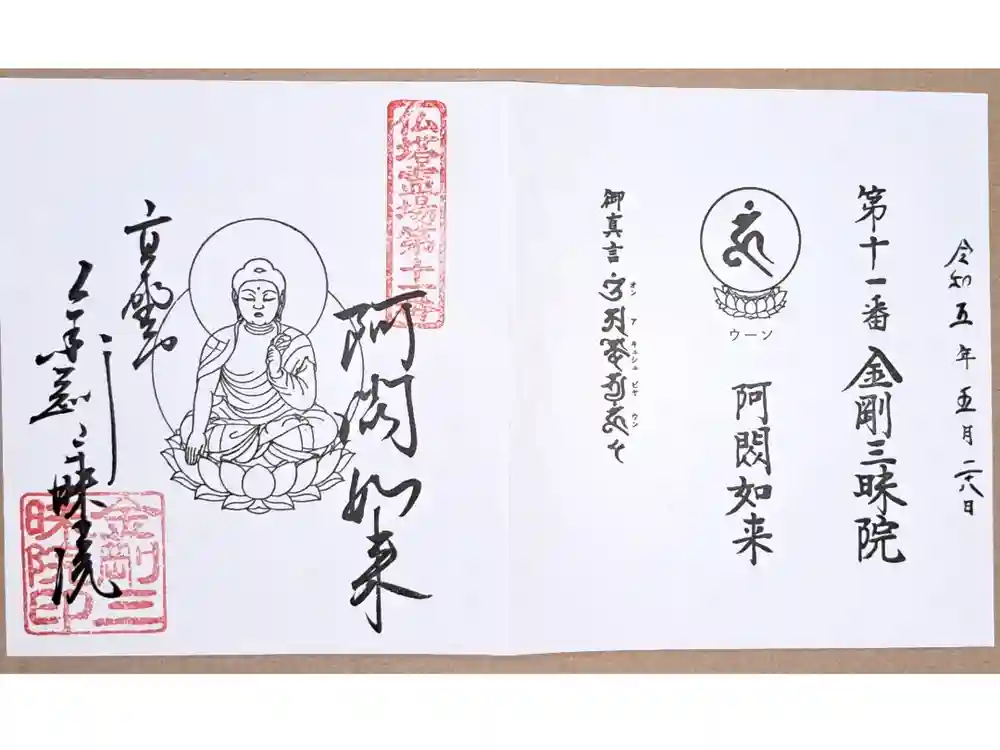 令和五年五月二十八日
第十一番 金剛三昧院
ウーン
阿閦如来
御真言
オン ア キュシュ ビヤ ウン
仏塔霊場第十一番
阿閦如来
高野山
金剛三昧院
金剛三昧院印